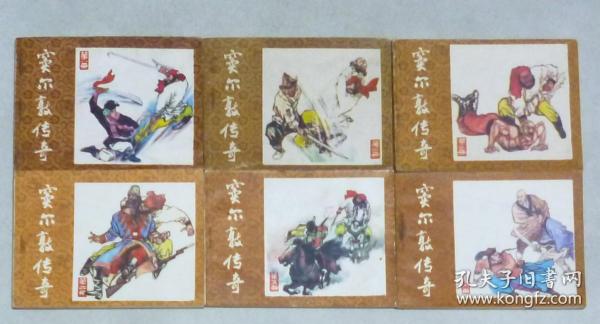 窦尔敦传奇
窦尔敦传奇
窦尔敦传奇
窦尔敦传奇
窦尔敦传奇
窦尔敦传奇
孔夫子旧书网
www.kongfz.com